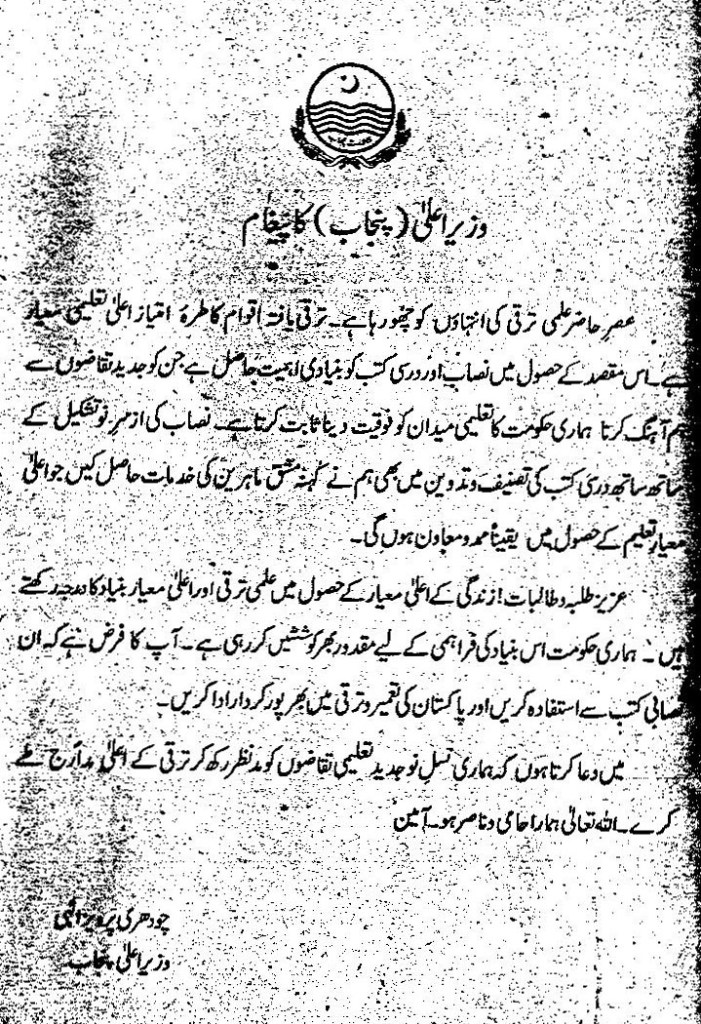 وزیر اعلیٰ (پنجاب) کا پیغام
عصرِ حاضر علمی ترقی کی انتہاؤں کو چھو رہا ہے۔ ترقی یافتہ اقوام کا طرۂ امتیاز اعلیٰ تعلیمی معیار
ہے۔ اس مقصد کے حصول میں نصاب اور درسی کتب کو بنیادی اہمیت حاصل ہے جن کو جدید تقاضوں سے
ہم آہنگ کرنا ہماری حکومت کا تعلیمی میدان کو فوقیت دینا ثابت کرتا ہے۔ نصاب کی ازسرِ نو تشکیل کے
ساتھ ساتھ درسی کتب کی تصنیف و تدوین میں بھی ہم نے کہنہ مشق ماہرین کی خدمات حاصل کیں جو اعلیٰ
معیارِ تعلیم کے حصول میں یقیناً ممد و معاون ہوں گی۔
عزیز طلبہ و طالبات! زندگی کے اعلیٰ معیار کے حصول میں علمی ترقی اور اعلیٰ معیار بنیاد کا درجہ رکھتے
ہیں۔ ہماری حکومت اس بنیاد کی فراہمی کے لیے مقدور بھر کوششیں کر رہی ہے۔ آپ کا فرض ہے کہ ان
نصابی کتب سے استفادہ کریں اور پاکستان کی تعمیر و ترقی میں بھرپور کردار ادا کریں۔
میں دعا کرتا ہوں کہ ہماری نسلِ نو جدید تعلیمی تقاضوں کو مدنظر رکھ کر ترقی کے اعلیٰ مدارج طے
کرے۔ اللہ تعالیٰ ہمارا حامی و ناصر ہو۔ آمین
چودھری پرویز الٰہی
وزیر اعلیٰ پنجاب